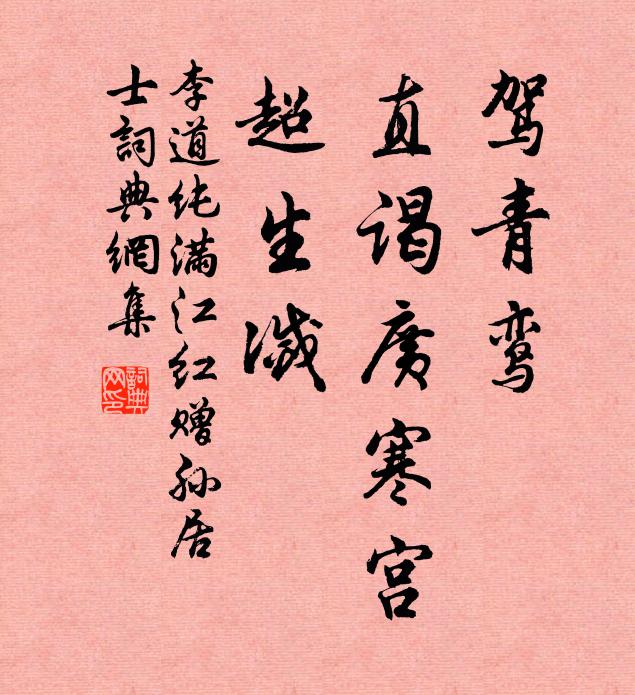 驾青鸾
直谒广寒宫
超生灭
李道纯满江红赠孙居
士詞典網集
詞典
网印